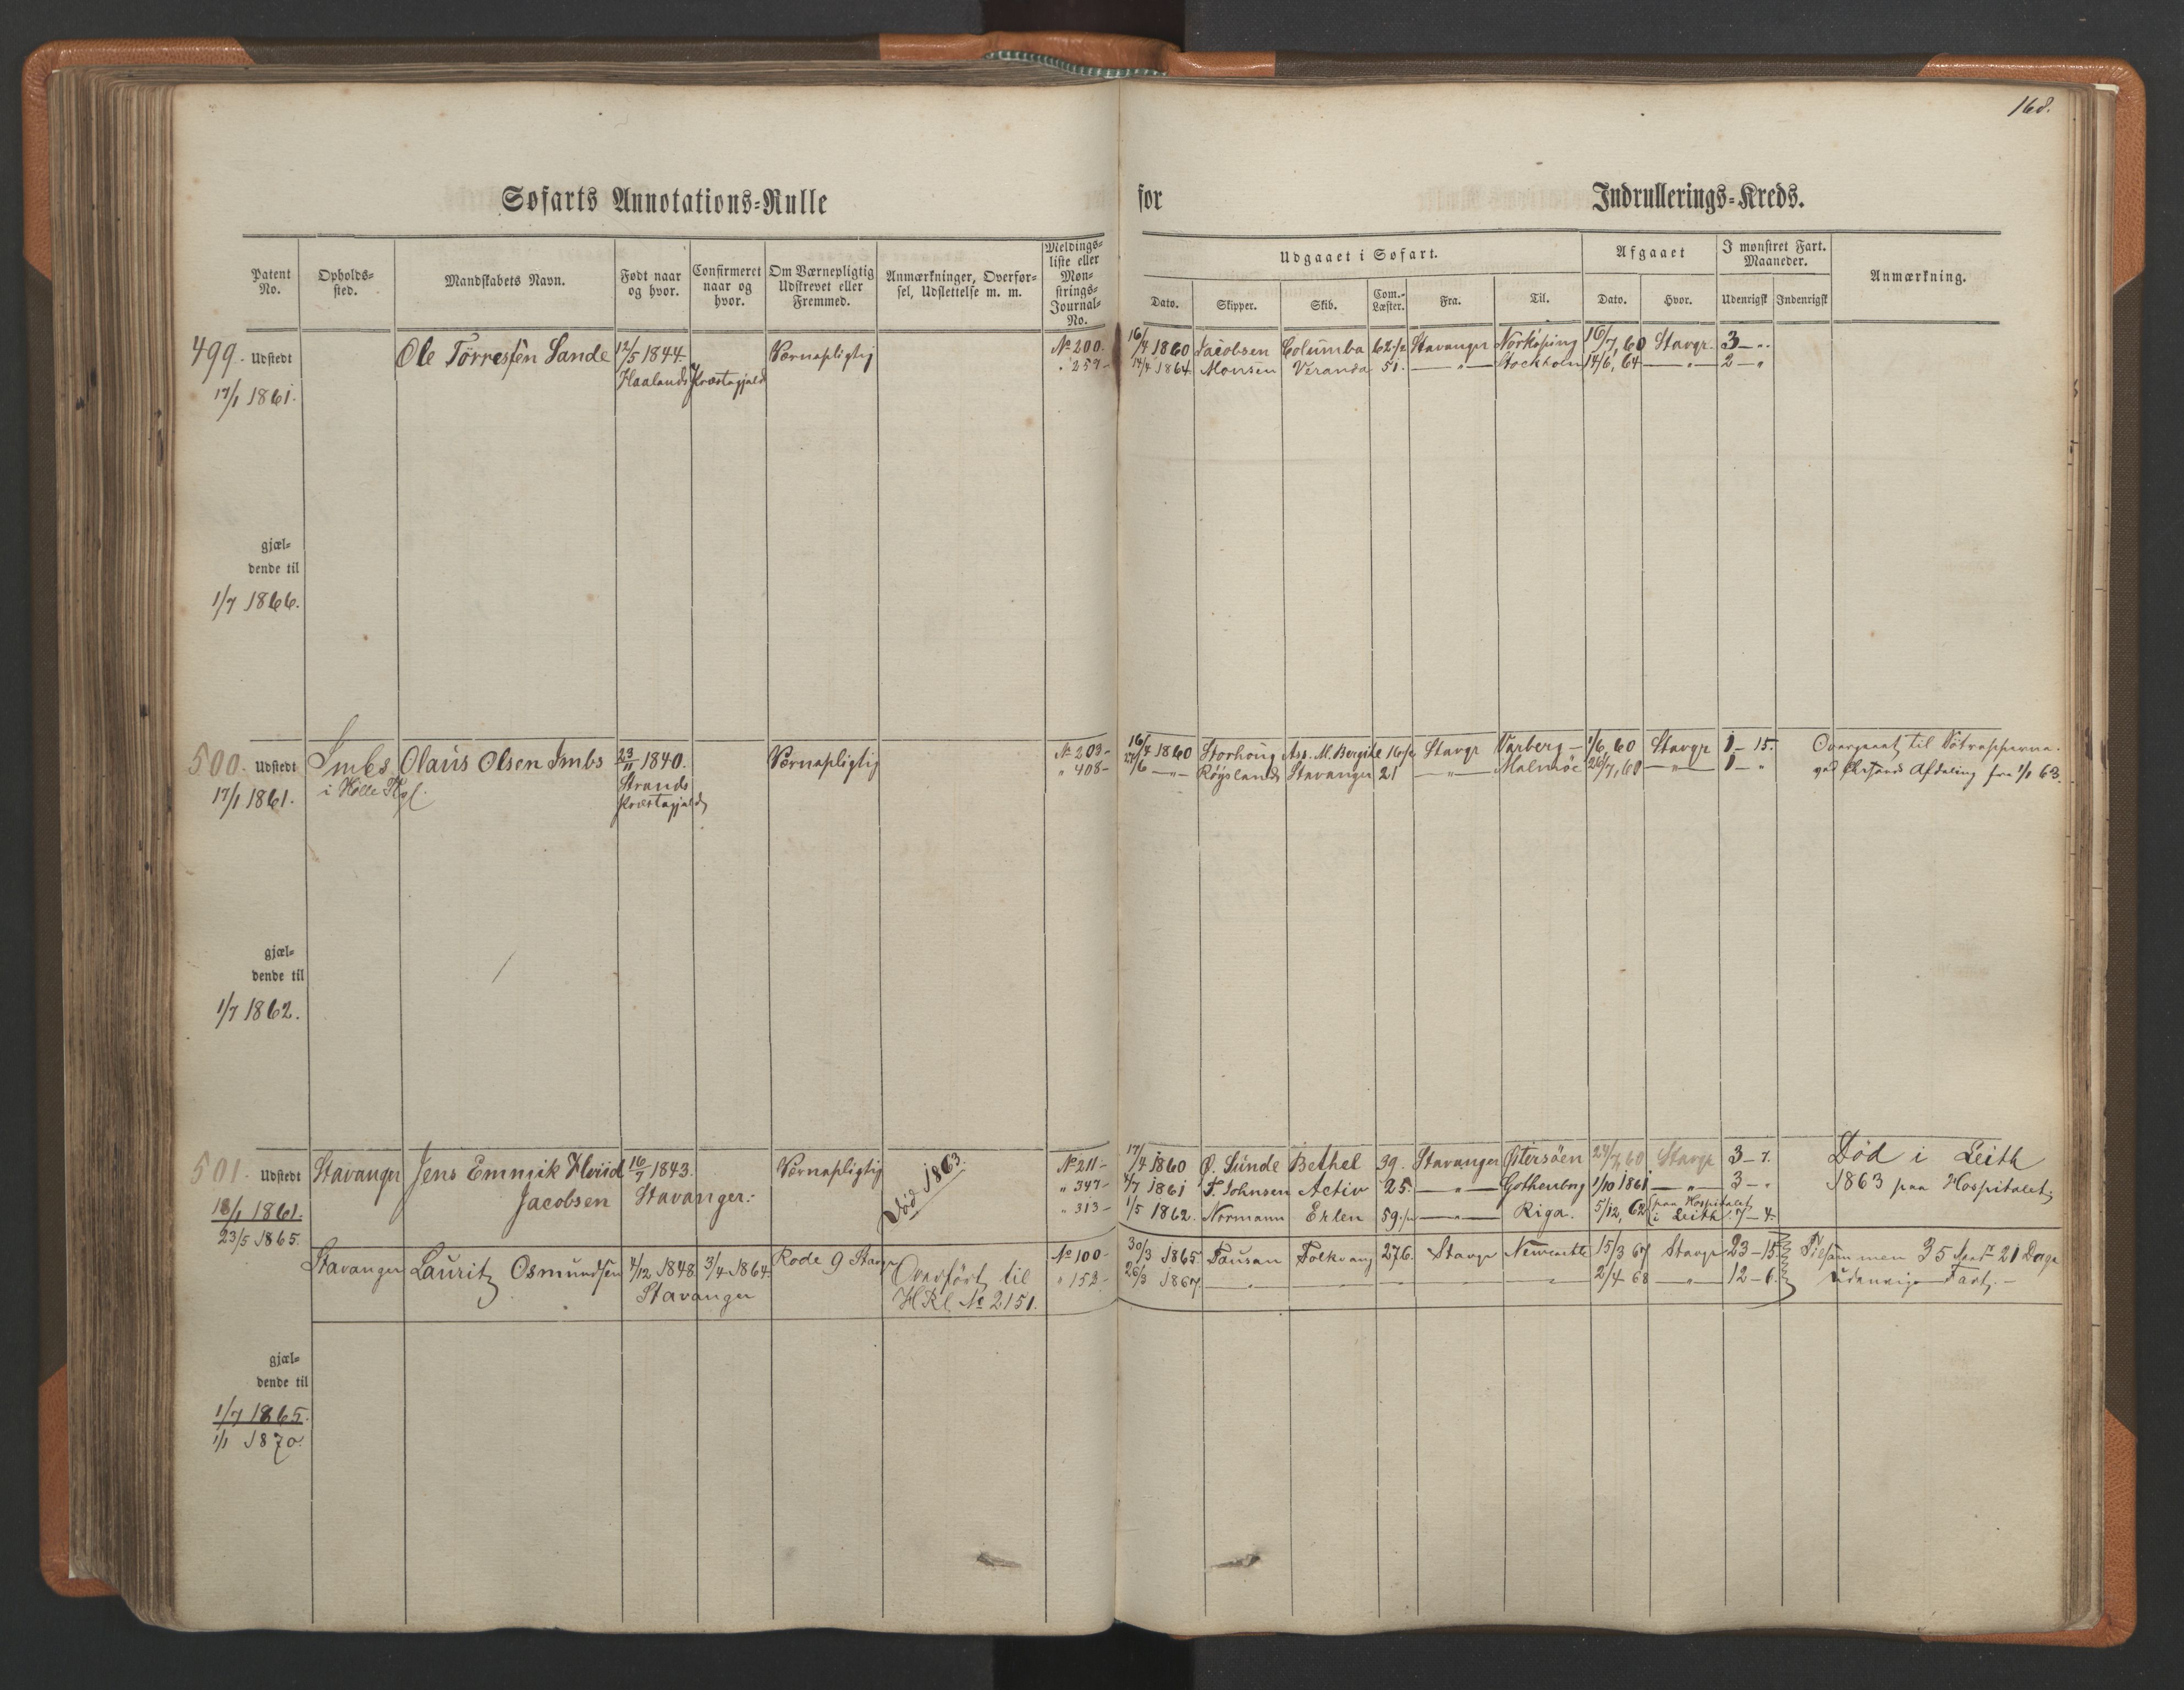 168.
Søfarts Annotations=Rulle for Indrullerings=Kreds.
Patent No. Opholds=sted. Mandskabets Navn. Født naar og hvor. Confirmeret naar og hvor. Om Værnepligtig Udskrevet eller Fremmed. Anmærkninger, Overførsel, Udslettelse m. m. Meldings=liste eller Mønstrings=Journal=No.
Udgaaet i Søfart. Afgaaet I mønstret Fart. Maaneder. Anmærkning.
Dato. Skipper. Skib. Com.-Læster. Fra. Til. Dato. Hvor. Udenrigsk Indenrigsk
499. Udstedt Ole Törressen Sande 12/5 1844. Værnepligtig No 200. 16/4 1860 Jacobsen Columba 62 1/2 Stavanger Norköping 16/7, 60 Stavgr. 3 — "
17/1 1861. Haalands Præstegjeld " 257 - 14/4 1864 Monsen Veranda 51. — " — Stockholm 14/6, 64 — " — 2 — "
gjæl=
dende til
1/7 1866.
500. Udstedt Imbs Olaus Olsen Imbs 23/11 1840. Værnepligtig No 203 - 16/4 1860 Storhoug Ass. M. Bergite Stavgr Varberg — 1/6, 60 Stavgr 1 — 15. Overgaaet til
17/1 1861. i Hölle Strands Præstegjeld " 408 - /6 — " — Röysland Stavanger 21 — " — Malmöe 26/7, 60 — " — 1 — " ved Afdeling fra 1/1 63.
gjæl=
dende til
1/7 1862.
501. Udstedt Stavanger Jens Emmik Hviid 16/7 1843. Værnepligtig Död 1863. No 211 - 17/4 1860 O. Sunde Bethel 39. Stavanger Östersöen 24/7, 60 Stavgr 3 — 7. Död i Leith
18/1 1861. Jacobsen Stavanger. " 347 - 4/7 1861 T. Johnsen Activ 25. — " — Gothenborg 1/10 1861 — " — 3 — " 1863 paa Hospitalet.
23/5 1865. " 313 - 1/5 1862. Normann Erlen 59 — " — Riga. 5/12, 62 (paa Hospitalet i Leith 7 — 4.
Stavanger Lauritz Osmundsen 4/12 1848 3/4 1864. Rode 9 Stavgr Overført til No 100 - 30/3 1865 Tausan Folkvang 276. Stavgr Newcastle 15/3 67 Stavgr 23 — 15 Tilsammen 35 21 Dage
Stavanger HRl. No 2151. " 153 - 26/3 1867 — " — — " — 2/4 68 — " — 12 — 6. udenrigs Fart. —
gjæl=
dende til
1/7 1865.
1/1 1870.